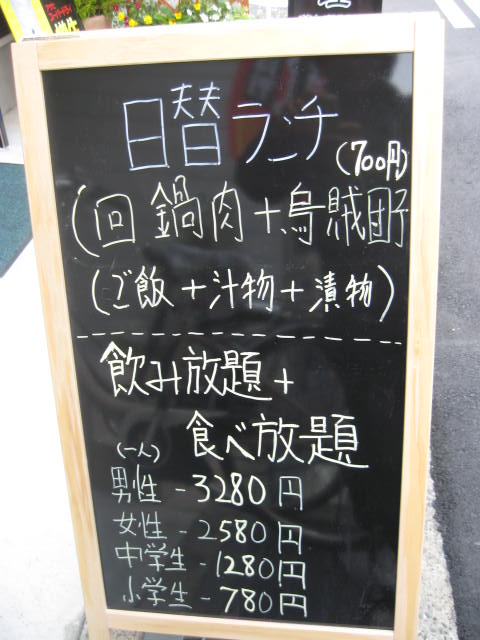 日替ランチ
(700円)
(回鍋肉+烏賊団子
(ご飯+汁物+漬物)
飲み放題+
食べ放題
(一人)
男性-3280円
女性-2580円
中学生-1280円
小学生-780円